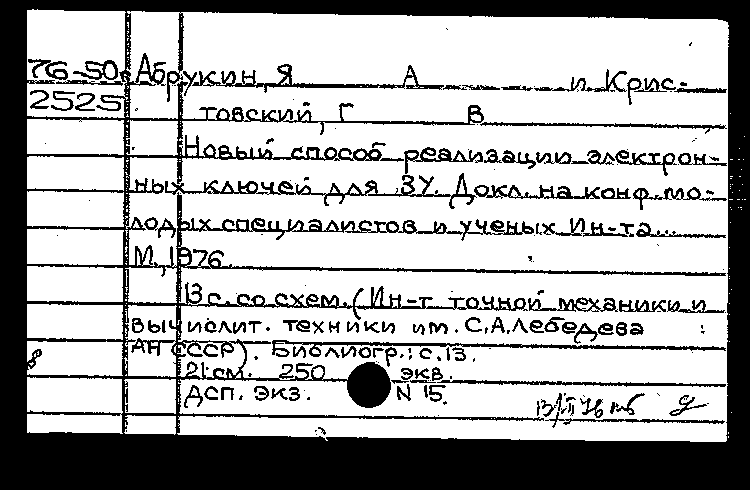 76-50 Абрукин, Я А и Крис-
2525 товский, Г В
Новый способ реализации электрон-
ных ключей для ЗУ. Докл. на конф. мо-
лодых специалистов и ученых Ин-та...
М., 1976.
13 с. со схем. (Ин-т точной механики и
вычислит. техники им. С.А.Лебедева
АН СССР). Библиогр.: с.13.
21 см. 250 экв.
ДСП. экз. N 15.